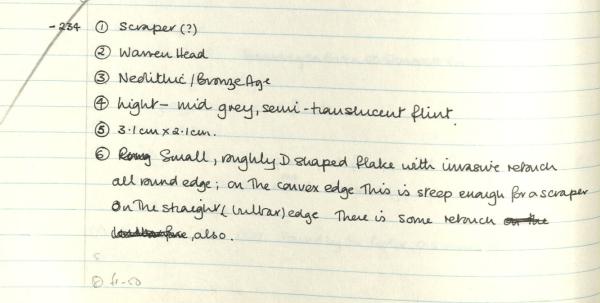 -234 ① Scraper (?)
② Warren Head
③ Neolithic / Bronze Age
④ Light - mid grey, semi-translucent flint.
⑤ 3.1cm x 2.1cm.
⑥ Small, roughly D shaped flake with invasive retouch
all round edge; on the convex edge this is steep enough for a scraper
on the straight (bulbar) edge there is some retouch on the
also.